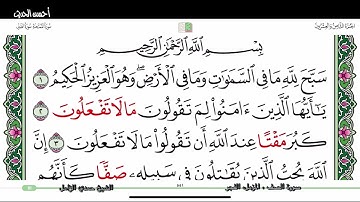 أحسن الحديث
بِسْمِ اللَّهِ الرَّحْمَٰنِ الرَّحِيمِ
سَبَّحَ لِلَّهِ مَا فِي السَّمَاوَاتِ وَمَا فِي الْأَرْضِ ۖ وَهُوَ الْعَزِيزُ الْحَكِيمُ ١
يَا أَيُّهَا الَّذِينَ ءَامَنُوا لِمَ تَقُولُونَ مَا لَا تَفْعَلُونَ ٢
كَبُرَ مَقْتًا عِندَ اللَّهِ أَن تَقُولُوا مَا لَا تَفْعَلُونَ ٣ إِنَّ
اللَّهَ يُحِبُّ الَّذِينَ يُقَاتِلُونَ فِي سَبِيلِهِ صَفًّا كَأَنَّهُم
سورة الصف ، المزمل، الفجر